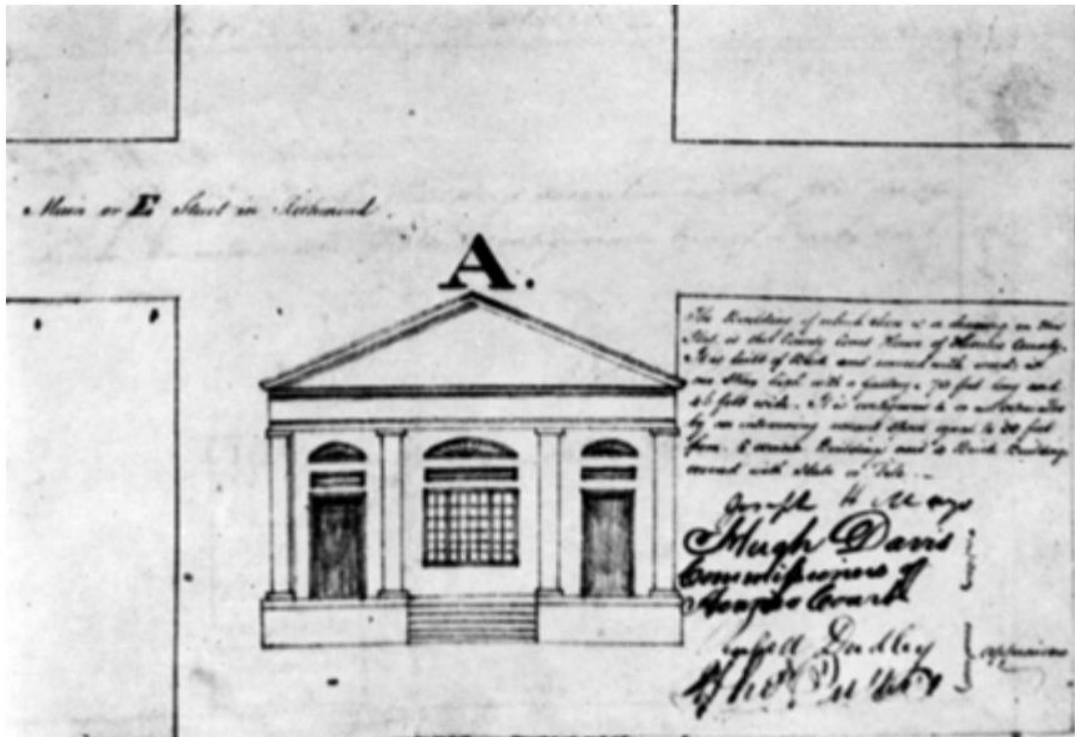 Main or E Street in Richmond.
A.
The Building of which there is a drawing on this
is the County Court House of Henrico County.
It is built of Brick and covered with wood, is
one Story high with a 70 feet long and
46 feet wide. It is contiguous to
by an intervening vacant space equal to 20 feet
from Building and a Brick Building
covered with Slate or Tile.
Joseph H Mayo
Hugh Davis
Commissioners of
Court
Dudley